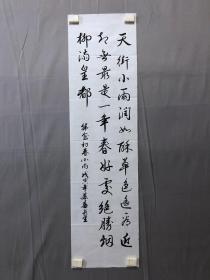 天街小雨润如酥草色遥看近
却无最是一年春好处绝胜烟
柳满皇都
韩愈初春小雨戊戌年